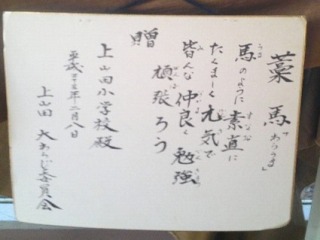 藁馬 "わらうま"
馬のように素直に
たくましく元気で
皆んな仲良く勉強
頑張ろう
贈
上山田小学校殿
平成二十五年二月八日
上山田 大わらじ委員会